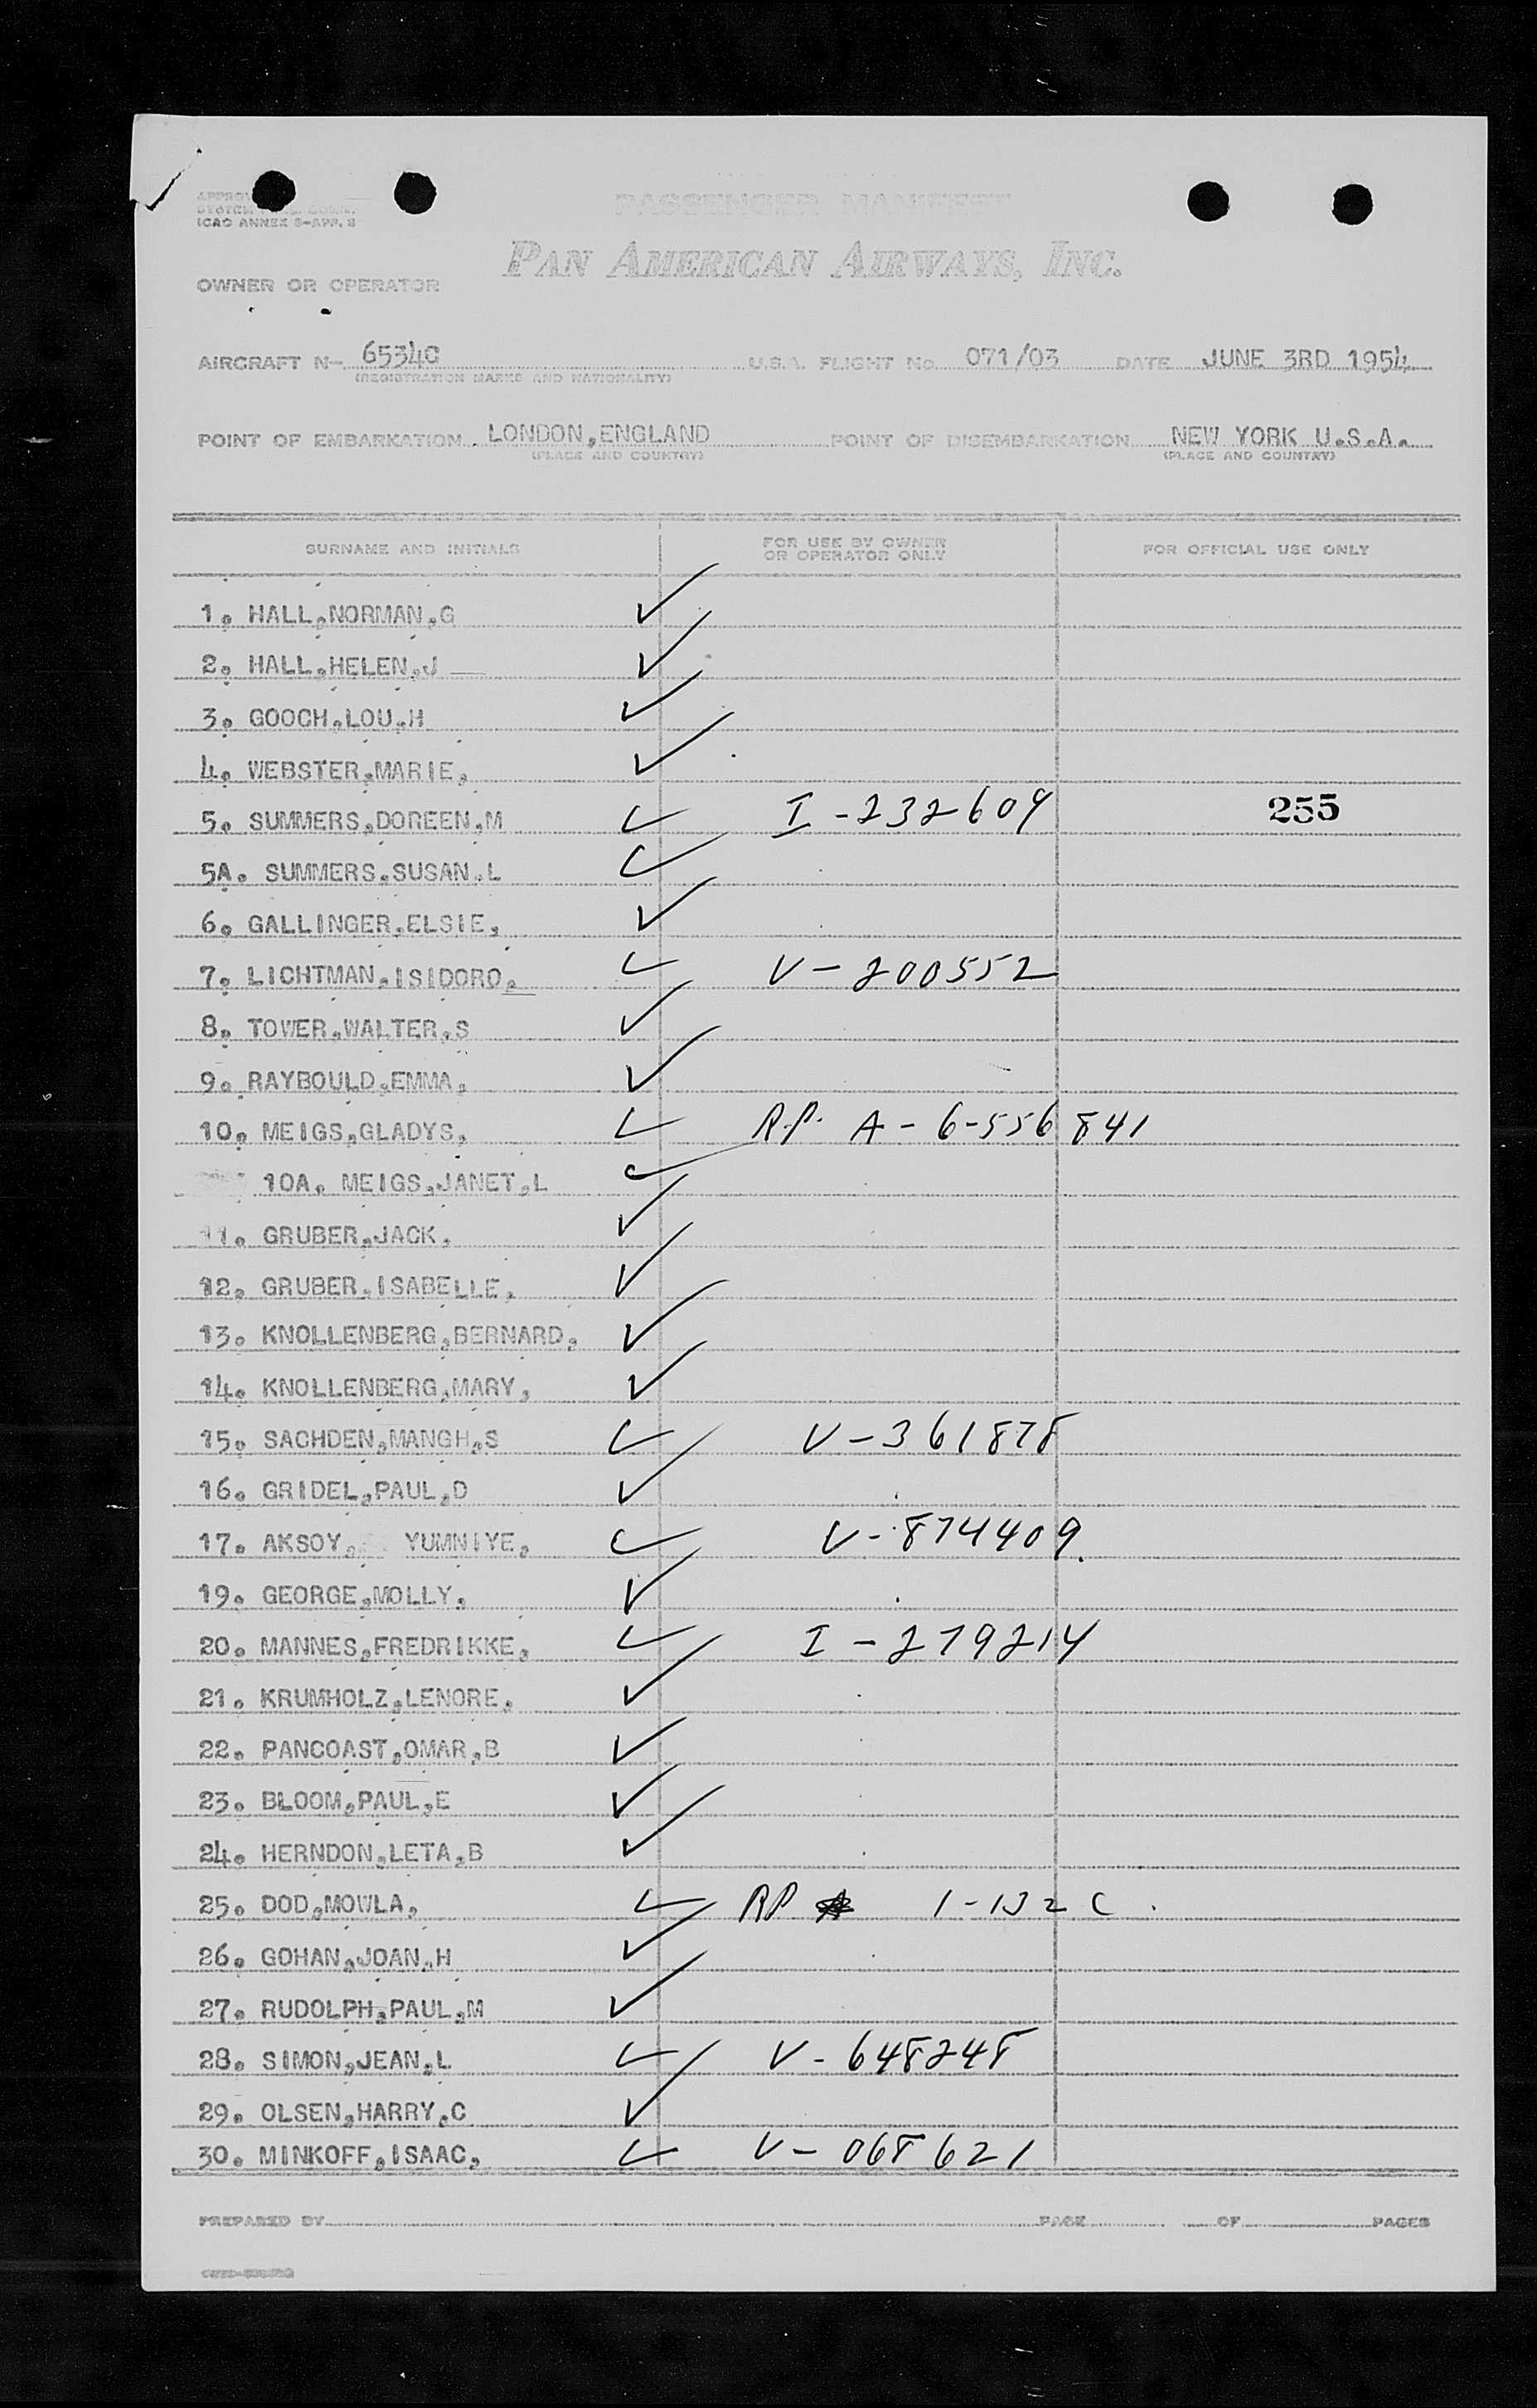 PASSENGER MANIFEST
ICAO ANNEX 9-APP. 3
PAN AMERICAN AIRWAYS, INC.
OWNER OR OPERATOR
AIRCRAFT N- 6534C U.S.A. FLIGHT No. 071/03 DATE JUNE 3RD 1954
(REGISTRATION MARKS AND NATIONALITY)
POINT OF EMBARKATION LONDON,ENGLAND POINT OF DISEMBARKATION NEW YORK U.S.A.
(PLACE AND COUNTRY) (PLACE AND COUNTRY)
SURNAME AND INITIALS FOR USE BY OWNER OR OPERATOR ONLY FOR OFFICIAL USE ONLY
1. HALL,NORMAN,G ✓
2. HALL,HELEN,J ✓
3. GOOCH,LOU,H ✓
4. WEBSTER,MARIE, ✓
5. SUMMERS,DOREEN,M ✓ I-232609 255
5A. SUMMERS,SUSAN,L ✓
6. GALLINGER,ELSIE, ✓
7. LICHTMAN,ISIDORO, ✓ V-200552
8. TOWER,WALTER,S ✓
9. RAYBOULD,EMMA, ✓
10. MEIGS,GLADYS, ✓ R.P. A-6-556 841
10A. MEIGS,JANET,L ✓
11. GRUBER,JACK, ✓
12. GRUBER,ISABELLE, ✓
13. KNOLLENBERG,BERNARD, ✓
14. KNOLLENBERG,MARY, ✓
15. SACHDEN,MANGH,S ✓ V-361878
16. GRIDEL,PAUL,D ✓
17. AKSOY, YUMNIYE, ✓ V-874409
19. GEORGE,MOLLY, ✓
20. MANNES,FREDRIKKE, ✓ I-279214
21. KRUMHOLZ,LENORE, ✓
22. PANCOAST,OMAR,B ✓
23. BLOOM,PAUL,E ✓
24. HERNDON,LETA,B ✓
25. DOD,MOWLA, ✓ RP 1-132 C
26. GOHAN,JOAN,H ✓
27. RUDOLPH,PAUL,M ✓
28. SIMON,JEAN,L ✓ V-648248
29. OLSEN,HARRY,C ✓
30. MINKOFF,ISAAC, ✓ V-068621
PREPARED BY PAGE OF PAGES